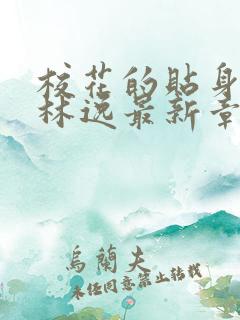 校花的贴身
林逸最新章
乌兰夫
未经同意禁止转载